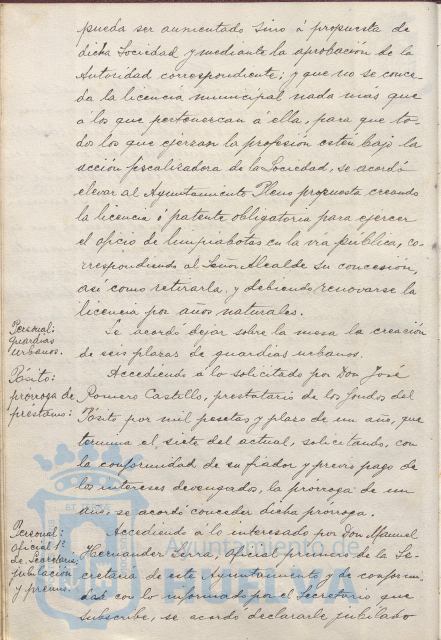 pueda ser aumentado sino á propuesta de
dicha Sociedad y mediante la aprobación de la
Autoridad correspondiente; y que no se conce-
da la licencia municipal nada más que
á los que pertenezcan á ella, para que to-
dos los que ejerzan la profesión estén bajo la
acción fiscalizadora de la Sociedad, se acordó
elevar al Ayuntamiento Pleno propuesta creando
la licencia ó patente obligatoria para ejercer
el oficio de limpiabotas en la vía pública, co-
rrespondiendo al Señor Alcalde su concesión,
así como retirarla, y debiendo renovarse la
licencia por años naturales.
Personal:
guardias
urbanos.
Se acordó dejar sobre la mesa la creación
de seis plazas de guardias urbanos.
Pósito:
prórroga de
préstamo:
Accediendo á lo solicitado por Don José
Romero Castillo, prestatario de los fondos del
Pósito por mil pesetas y plazo de un año, que
termina el siete del actual, solicitando, con
la conformidad de su fiador y previo pago de
los intereses devengados, la prórroga de un
año, se acordó conceder dicha prórroga.
Personal:
oficial 1º
de Secretaría;
jubilación
y premio.
Accediendo á lo interesado por Don Manuel
Hernandez Serra, oficial primero de la Se-
cretaría de este Ayuntamiento y de conformi-
dad con lo informado por el Secretario que
subscribe, se acordó declararle jubilado
Ayuntamiento de
HUELVA